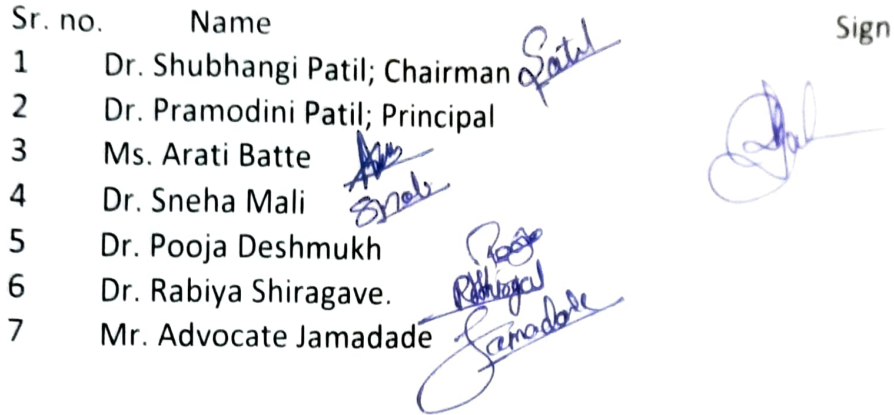 Sr. no. Name Sign
1 Dr. Shubhangi Patil; Chairman Patil
2 Dr. Pramodini Patil; Principal
3 Ms. Arati Batte
4 Dr. Sneha Mali
5 Dr. Pooja Deshmukh Pooja
6 Dr. Rabiya Shiragave.
7 Mr. Advocate Jamadade Jamadade